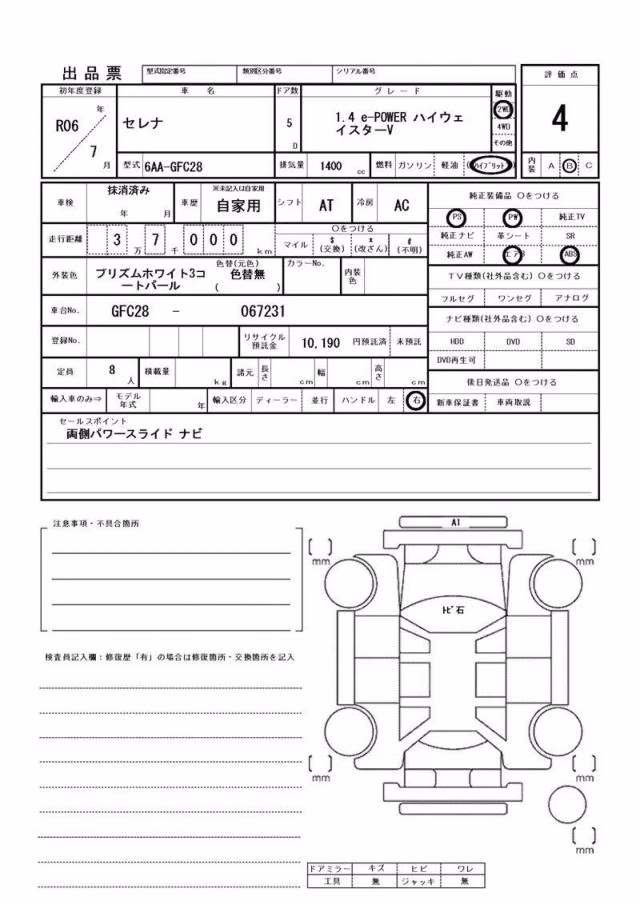 出品票 型式指定番号 類別区分番号 シリアル番号
初年度登録 車 名 ドア数 グレード 駆動 評価点
R06 年 7 月 セレナ 5 D 1.4 e-POWER ハイウェ 2WD 4
イスターV 4WD
その他
型式 6AA-GFC28 排気量 1400 cc 燃料 ガソリン 軽油 (ハイブリット) 内装 A B C
車検 抹消済み 年 月 車歴 ※未記入は自家用 自家用 シフト AT 冷房 AC 純正装備品 〇をつける
PS PW 純正TV
走行距離 3 万 7 千 0 0 0 km 〇をつける
マイル $ (交換) * (改ざん) # (不明) 純正ナビ 革シート SR
純正AW エアB ABS
外装色 プリズムホワイト3コ 色替(元色) カラーNo. 内装色 TV種類(社外品含む) 〇をつける
ートパール 色替無 ( )
フルセグ ワンセグ アナログ
車台No. GFC28 - 067231 ナビ種類(社外品含む) 〇をつける
登録No. リサイクル預託金 10,190 円預託済 未預託 HDD DVD SD
DVD再生可
定員 8 人 積載量 kg 諸元 長さ cm 幅 cm 高さ cm 後日発送品 〇をつける
輸入車のみ⇒ モデル年式 年 輸入区分 ディーラー 並行 ハンドル 左 右 新車保証書 車両取説
セールスポイント
両側パワースライド ナビ
注意事項・不具合箇所
A1
mm mm
ﾄﾋﾞ石
検査員記入欄:修復歴「有」の場合は修復箇所・交換箇所を記入
mm mm
mm
ドアミラー キズ ヒビ ワレ
工具 無 ジャッキ 無